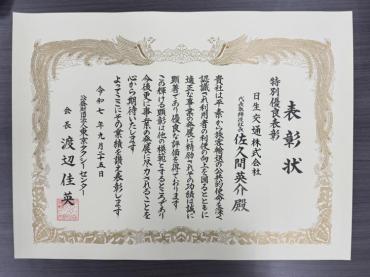 表彰状
特別優良表彰
日生交通株式会社
代表取締役社長 佐久間英介殿
貴社は平素から旅客輸送の公共的使命を深く
認識され利用者の利便の向上を図るとともに
適正な事業の発展に精励されその功績は誠に
顕著であり優良な評価を得ております
この輝ける顕彰は他の模範とするところであり
今後更に事業の発展に尽力されることを
心から期待いたします
よってここにその業績を讃え表彰します
令和七年九月二十五日
公益財団法人東京タクシーセンター
会長 渡辺佳英